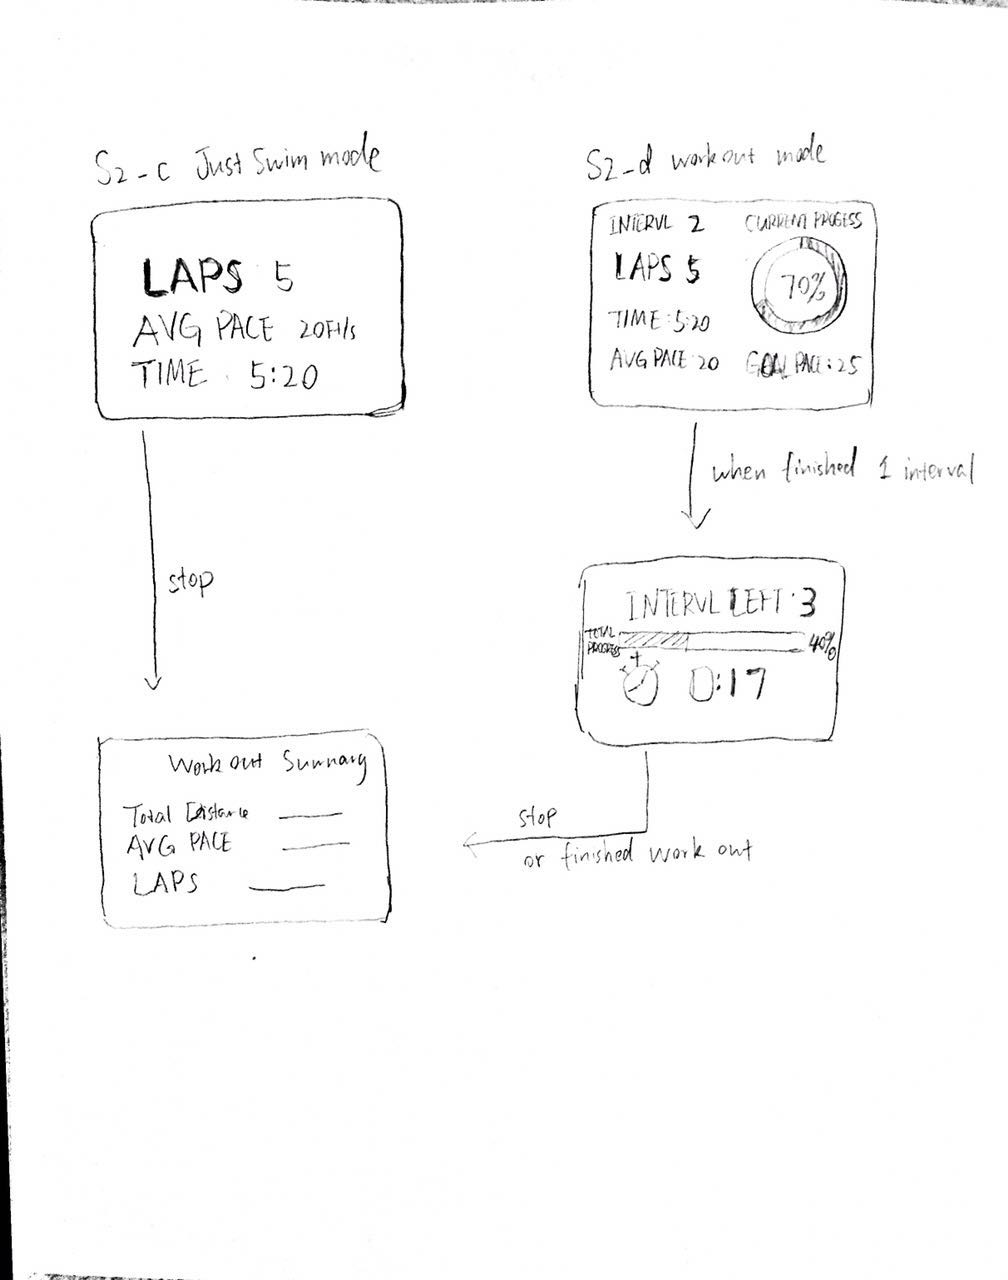 S2-c Just Swim mode
LAPS 5
AVG PACE 20Ft/s
TIME 5:20
stop
Work out Summary
Total Distance
AVG PACE
LAPS
S2-d workout mode
INTERVL 2
CURRENT PROGESS
LAPS 5
70%
TIME 5:20
AVG PACE 20
GOAL PACE: 25
when finished 1 interval
INTERVL LEFT 3
TOTAL
PROGRESS
40%
0:17
stop
or finished work out